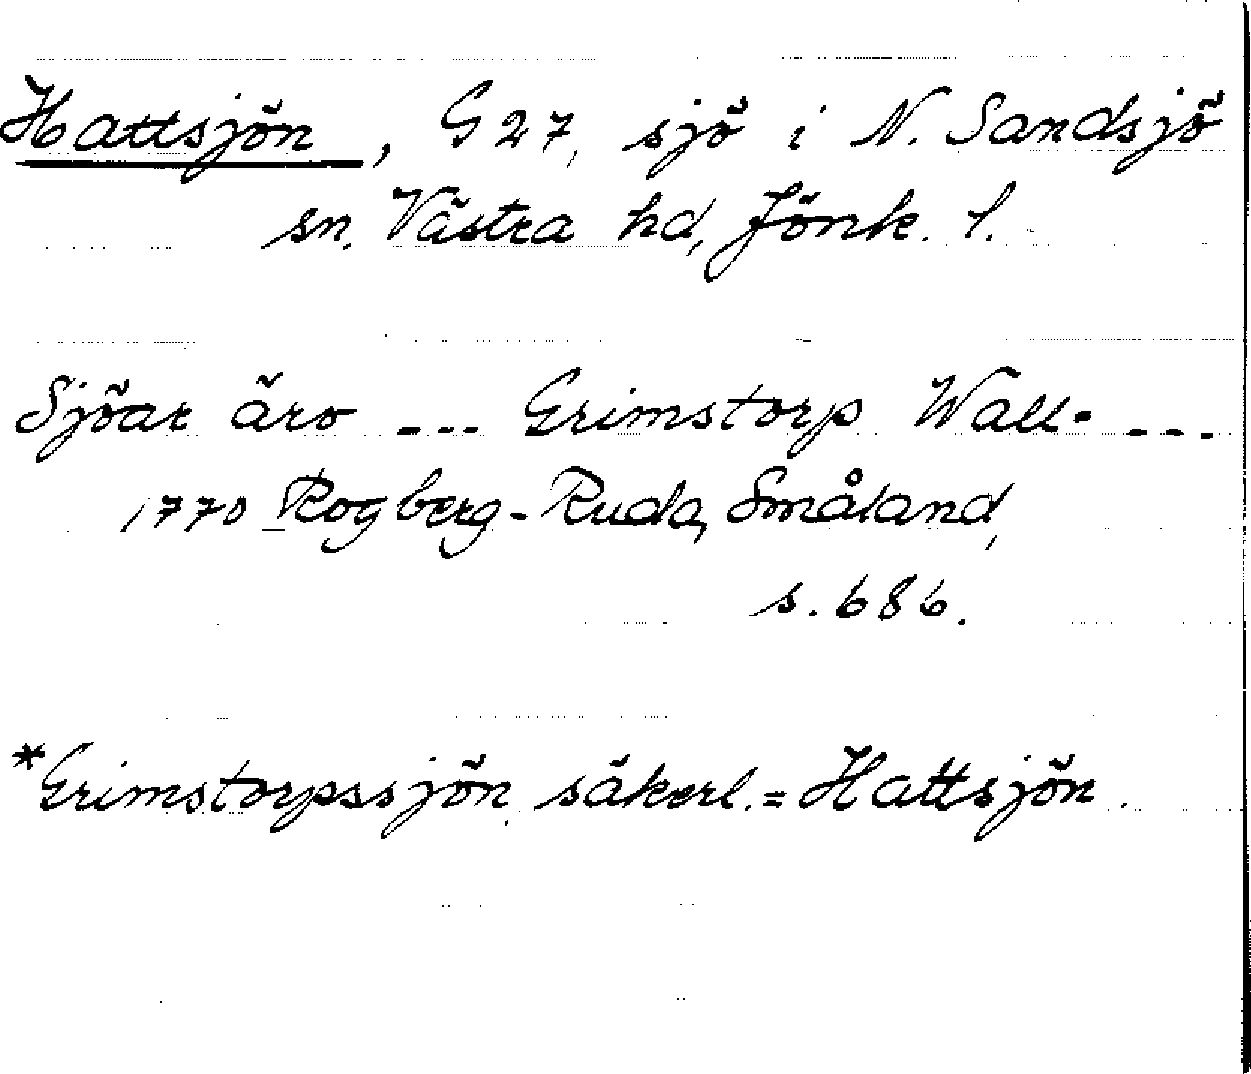 Hattsjön, G 27, sjö i N. Sandsjö
sn. Västra hd, Jönk. l.
Sjöar äro --- Grimstorp Wall- ---
1770 Rogberg-Ruda, Småland,
s. 686.
*Grimstorpssjön, säkerl. = Hattsjön.